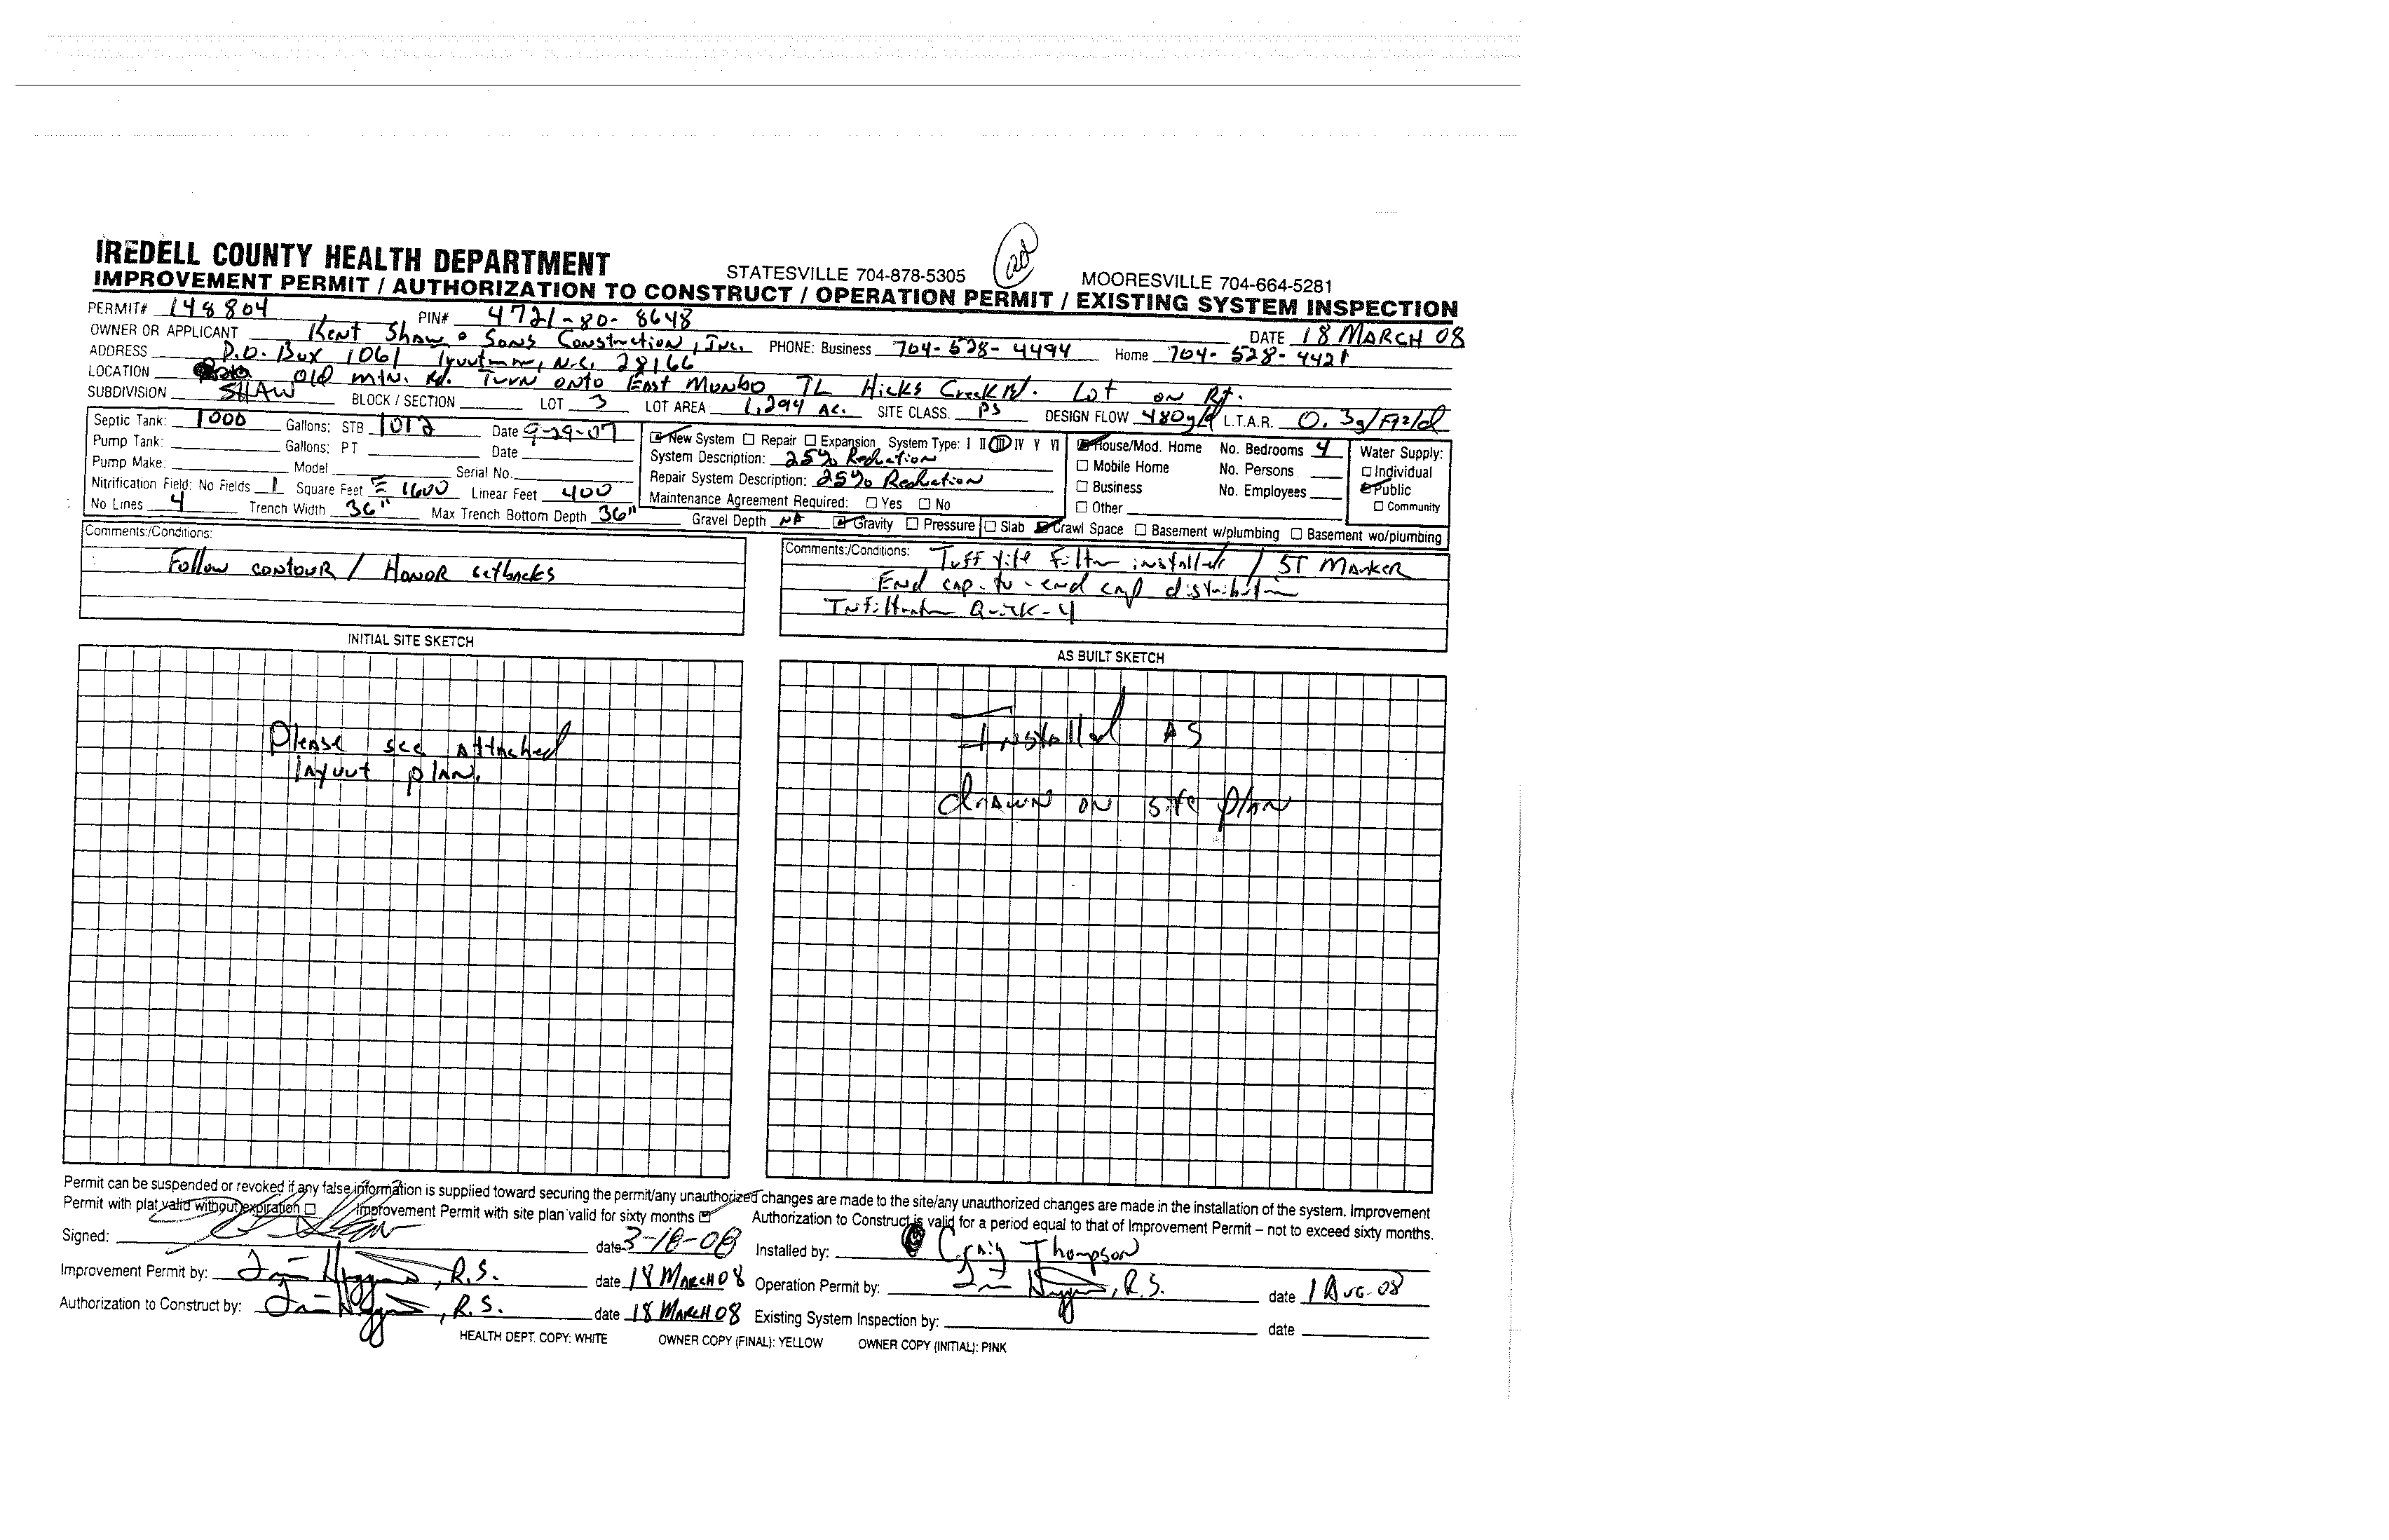 IREDELL COUNTY HEALTH DEPARTMENT STATESVILLE 704-878-5305 MOORESVILLE 704-664-5281
IMPROVEMENT PERMIT / AUTHORIZATION TO CONSTRUCT / OPERATION PERMIT / EXISTING SYSTEM INSPECTION
PERMIT# 148804 PIN# 4721-80-8648 DATE 18 MARCH 08
OWNER OR APPLICANT Kent Shaw & Sons Construction, Inc. PHONE: Business 704-528-4494 Home 704-528-4421
ADDRESS P.O. Box 1061 Troutman, N.C. 28166
LOCATION Old Mtn. Rd. Turn onto East Monbo TL Hicks Creek Rd. Lot on Rt.
SUBDIVISION SHAW BLOCK / SECTION LOT 3 LOT AREA 1.294 AC. SITE CLASS. PS DESIGN FLOW 480g/d L.T.A.R. 0.3g/Ft2/d
Septic Tank: 1000 Gallons: STB 1012 Date 9-29-07
Pump Tank: Gallons: PT Date
Pump Make: Model Serial No.
Nitrification Field: No Fields 1 Square Feet 1600 Linear Feet 400
No Lines 4 Trench Width 36" Max Trench Bottom Depth 36" Gravel Depth NA Gravity Pressure Slab Crawl Space Basement w/plumbing Basement wo/plumbing
New System Repair Expansion System Type: I II III IV V VI
System Description: 25% Reduction
Repair System Description: 25% Reduction
Maintenance Agreement Required: Yes No
House/Mod. Home No. Bedrooms 4
Mobile Home No. Persons
Business No. Employees
Other
Water Supply:
Individual
Public
Community
Comments:/Conditions:
Follow contour / Honor setbacks
Comments:/Conditions: Tuff tite Filter installed / ST Marker
End cap-to-end cap distribution
Infiltrator Quick-4
INITIAL SITE SKETCH
Please see attached
layout plan.
AS BUILT SKETCH
Installed AS
drawn on site plan
Permit can be suspended or revoked if any false information is supplied toward securing the permit/any unauthorized changes are made to the site/any unauthorized changes are made in the installation of the system. Improvement
Permit with plat valid without expiration Improvement Permit with site plan valid for sixty months Authorization to Construct is valid for a period equal to that of Improvement Permit – not to exceed sixty months.
Signed: date 3-18-08 Installed by: Craig Thompson
Improvement Permit by: , R.S. date 18 March 08 Operation Permit by: , R.S. date 1 Aug-08
Authorization to Construct by: , R.S. date 18 March 08 Existing System Inspection by: date
HEALTH DEPT. COPY: WHITE OWNER COPY (FINAL): YELLOW OWNER COPY (INITIAL): PINK